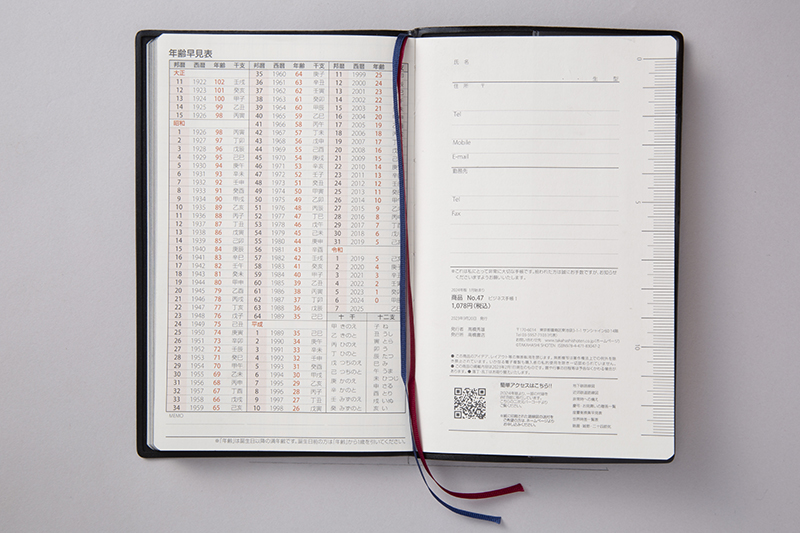 年齢早見表
邦暦 西暦 年齢 干支
大正
11 1922 102 壬戌
12 1923 101 癸亥
13 1924 100 甲子
14 1925 99 乙丑
15 1926 98 丙寅
昭和
1 1926 98 丙寅
2 1927 97 丁卯
3 1928 96 戊辰
4 1929 95 己巳
5 1930 94 庚午
6 1931 93 辛未
7 1932 92 壬申
8 1933 91 癸酉
9 1934 90 甲戌
10 1935 89 乙亥
11 1936 88 丙子
12 1937 87 丁丑
13 1938 86 戊寅
14 1939 85 己卯
15 1940 84 庚辰
16 1941 83 辛巳
17 1942 82 壬午
18 1943 81 癸未
19 1944 80 甲申
20 1945 79 乙酉
21 1946 78 丙戌
22 1947 77 丁亥
23 1948 76 戊子
24 1949 75 己丑
25 1950 74 庚寅
26 1951 73 辛卯
27 1952 72 壬辰
28 1953 71 癸巳
29 1954 70 甲午
30 1955 69 乙未
31 1956 68 丙申
32 1957 67 丁酉
33 1958 66 戊戌
34 1959 65 己亥
MEMO
邦暦 西暦 年齢 干支
35 1960 64 庚子
36 1961 63 辛丑
37 1962 62 壬寅
38 1963 61 癸卯
39 1964 60 甲辰
40 1965 59 乙巳
41 1966 58 丙午
42 1967 57 丁未
43 1968 56 戊申
44 1969 55 己酉
45 1970 54 庚戌
46 1971 53 辛亥
47 1972 52 壬子
48 1973 51 癸丑
49 1974 50 甲寅
50 1975 49 乙卯
51 1976 48 丙辰
52 1977 47 丁巳
53 1978 46 戊午
54 1979 45 己未
55 1980 44 庚申
56 1981 43 辛酉
57 1982 42 壬戌
58 1983 41 癸亥
59 1984 40 甲子
60 1985 39 乙丑
61 1986 38 丙寅
62 1987 37 丁卯
63 1988 36 戊辰
64 1989 35 己巳
平成
1 1989 35 己巳
2 1990 34 庚午
3 1991 33 辛未
4 1992 32 壬申
5 1993 31 癸酉
6 1994 30 甲戌
7 1995 29 乙亥
8 1996 28 丙子
9 1997 27 丁丑
10 1998 26 戊寅
邦暦 西暦 年齢
11 1999 25
12 2000 24
13 2001 23
14 2002 22
15 2003 21
16 2004 20
17 2005 19
18 2006 18
19 2007 17
20 2008 16
21 2009 15
22 2010 14
23 2011 13
24 2012 12
25 2013 11
26 2014 10
27 2015 9
28 2016 8
29 2017 7
30 2018 6
31 2019 5
令和
1 2019 5
2 2020 4
3 2021 3
4 2022 2
5 2023 1
6 2024 0
7 2025
十干 十二支
甲 きのえ 子 ね
乙 きのと 丑 うし
丙 ひのえ 寅 とら
丁 ひのと 卯 う
戊 つちのえ 辰 たつ
己 つちのと 巳 み
庚 かのえ 午 うま
辛 かのと 未 ひつじ
壬 みずのえ 申 さる
癸 みずのと 酉 とり
戌 いぬ
亥 い
氏名
生 型
住所 〒
Tel
Mobile
E-mail
勤務先
Tel
Fax
商品 No.47 ビジネス手帳1
1,078円(税込)
発行所 高橋書店
簡単アクセスはこちら!!
0
5
10